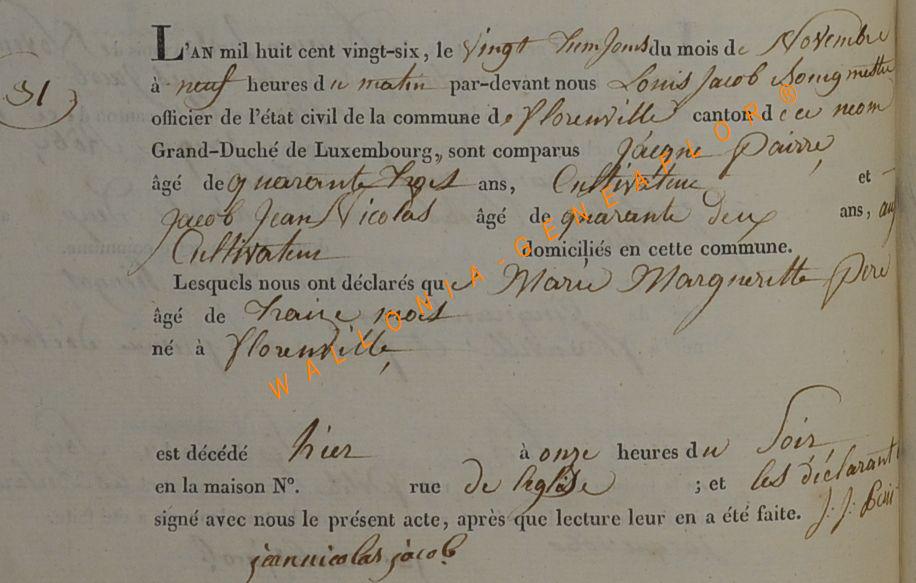 31
L'AN mil huit cent vingt-six, le vingt Jour du mois de Novembre
à neuf heures du matin par-devant nous Louis Jacob Bourgmestre
officier de l'état civil de la commune de florenville canton de ce nom
Grand-Duché de Luxembourg, sont comparus Jacque
âgé de quarante trois ans, Cultivateur et
Jacob Jean Nicolas âgé de quarante deux ans, au
Cultivateur domiciliés en cette commune.
Lesquels nous ont déclarés que Marie Margueritte
âgé de traize mois
né à florenville
est décédé hier à onze heures du Soir
en la maison N°. rue de leglise ; et les déclarant
signé avec nous le présent acte, après que lecture leur en a été faite. J. J.
jean nicolas jacob
WALLONIA-GENEAFLOR ®